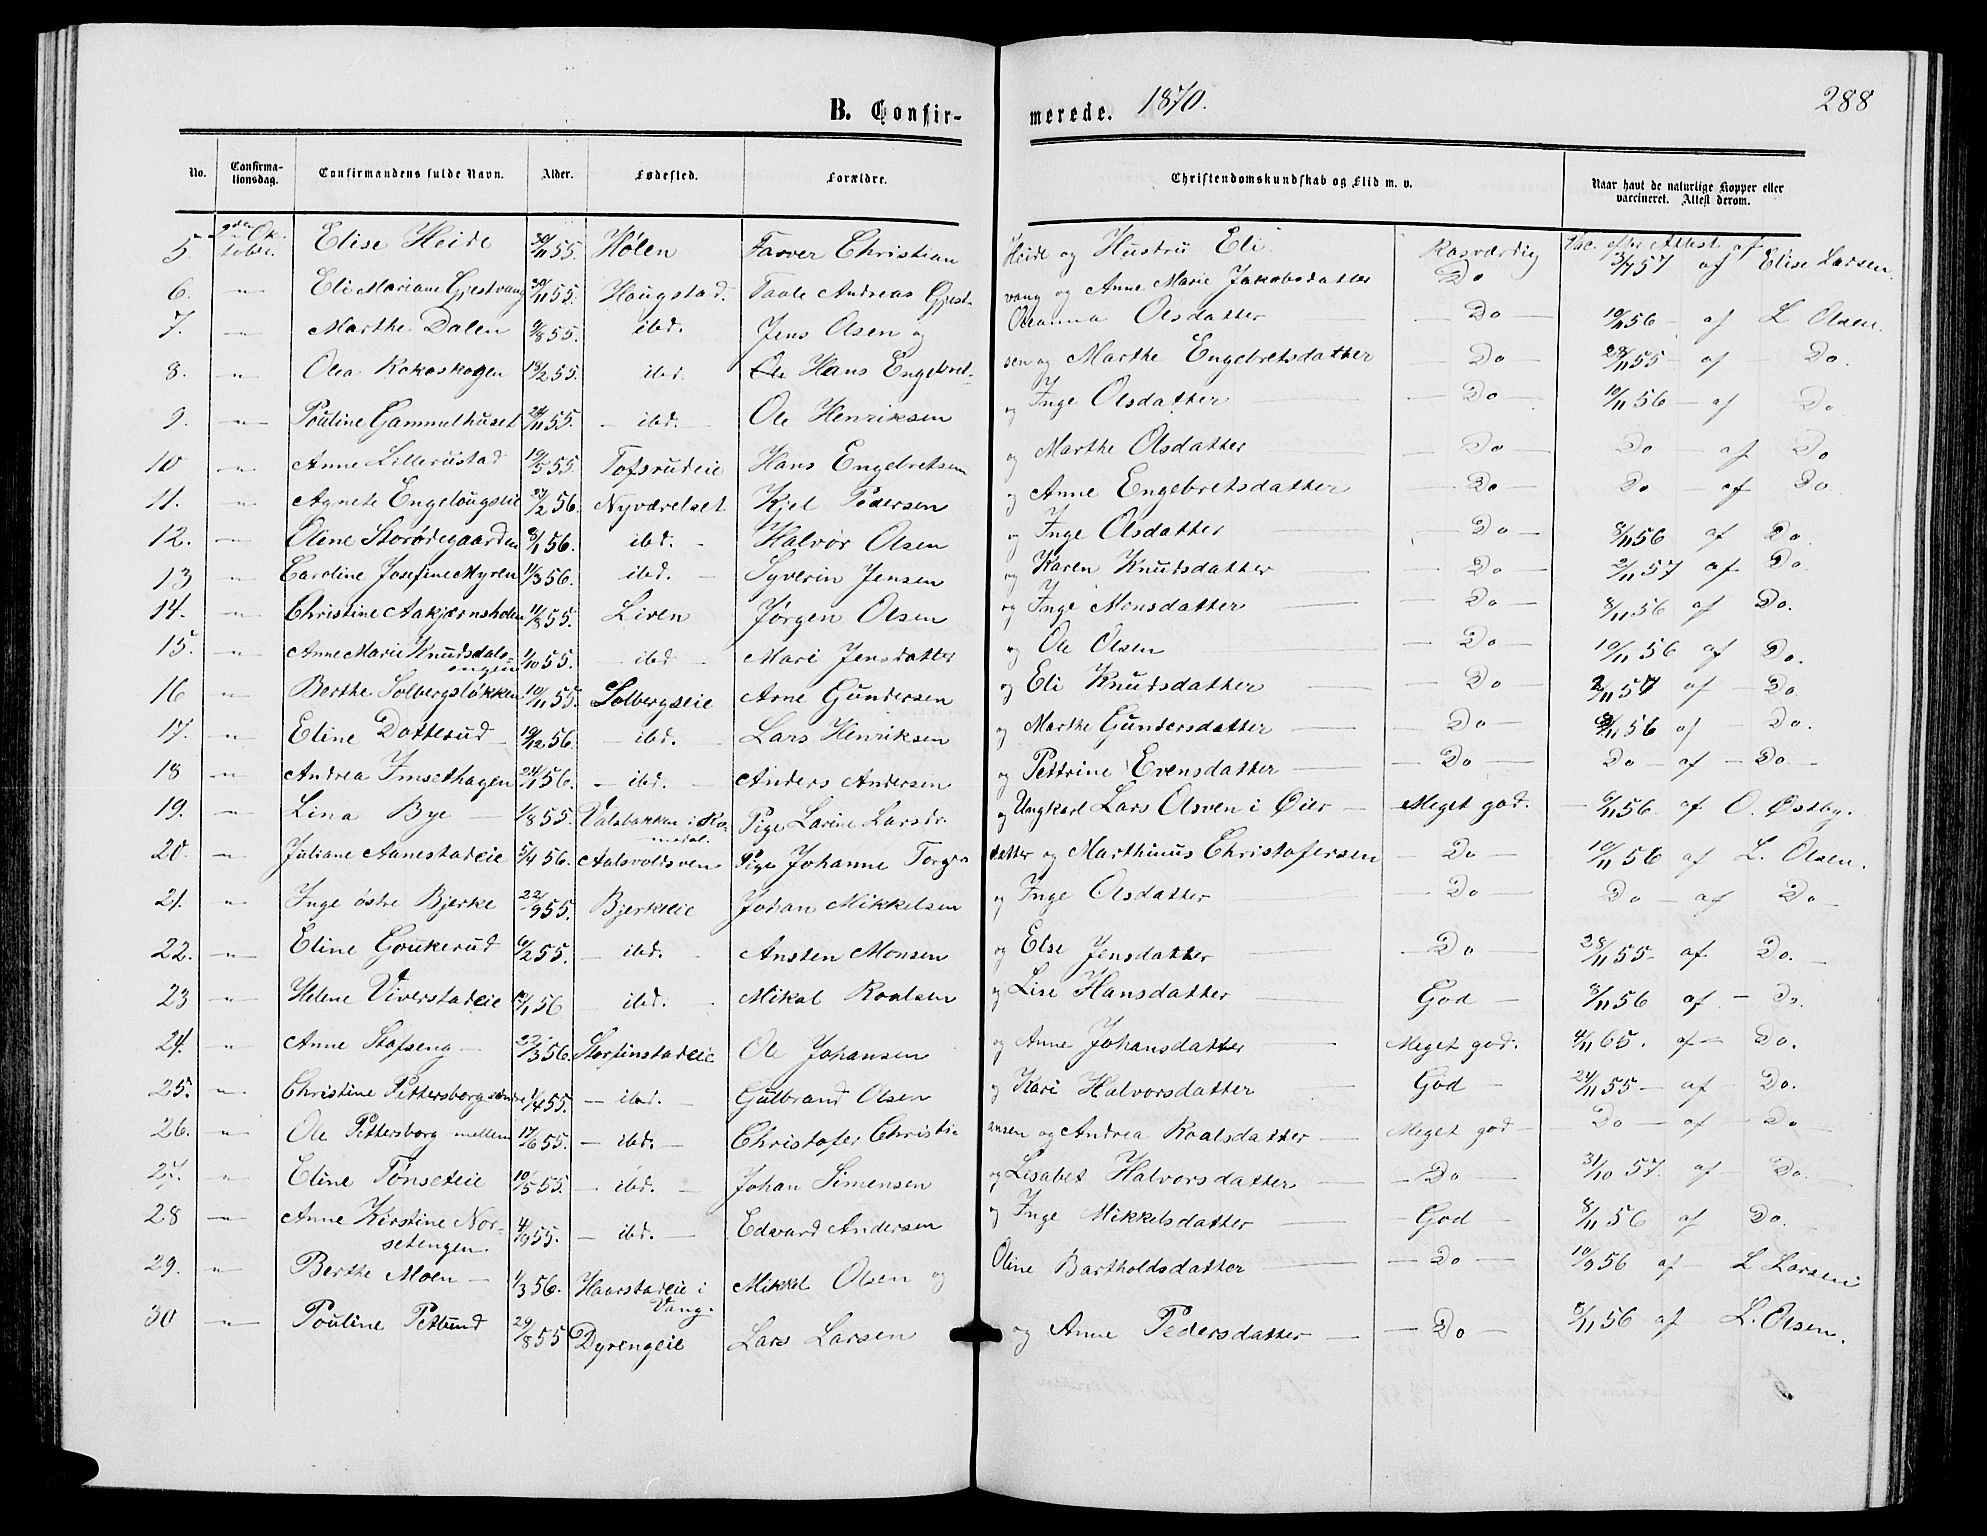 B. Confir-
merede. 1870.
288
No.
Confirma-
tionsdag.
Confirmandens fulde Navn.
Alder.
Fødested.
Forældre.
Christendomskundskab og Flid m. v.
Naar havt de naturlige Kopper eller
vaccineret. Attest derom.
5 2den Ok- tober Elise Heide 30/11 55. Hølen Farver Christian Heide og Hustru Eli Rosværdig Vac. efter Attest af 3/7 57 af Elise Larsen.
6. -"- Eli Mariane Gjestvang 30/11 55. Hougstad. Andreas Gjest- vang og Anne Marie Jakobsdatter Do
7. -"- Marthe Dalen 9/8 55. ibd. Jens Olsen og Oleanna Olsdatter Do 10/11 56 - af L Olsen.
8. -"- Olea Kokoskogen 18/2 55. ibd. Ole Hans Engebret- sen og Marthe Engebretsdatter Do 28/11 55 - af Do.
9. -"- Pouline Gammelhuset 24/11 55. - ibd. Ole Henriksen og Inge Olsdatter Do 10/11 56 - af Do
10 -"- Anne Lillerustad 19/5 55. Tofsrudeie Hans Engebretsen og Marthe Olsdatter Do Do - af Do
11. -"- Agnete Engelougseie 27/2 56. Nyværelset Kjel Pedersen og Anne Engebretsdatter Do Do - af Do
12. -"- Oline Storødegaarden 8/1 56. ibd. Halvor Olsen og Inge Olsdatter Do 8/11 56 af Do.
13 -"- Caroline Josefine Myren 11/3 56. ibd. Syverin Jensen og Karen Knudsdatter Do 2/11 57 af Do.
14. -"- Christine Aakjærnsholen 11/8 55. Liven Jørgen Olsen og Inge Monsdatter Do 8/11 56 af Do.
15. -"- Anne Marie Knudsdals- engen 1/10 55. - ibd - Mari Jensdatter og Ole Olsen Do 10/11 56 af Do.
16 -"- Berthe Solbergsløkken 10/11 55. Solbergseie Arne Gundersen og Eli Knudsdatter Do 2/11 57 af Do.
17. -"- Eline Dotterud 19/12 56. - ibd. - Lars Henriksen og Marthe Gundersdatter Do 8/11 56 af Do.
18 -"- Andrea Imsethagen 24/1 56. - ibd. - Anders Andersen og Pettrine Evensdatter Do Do - af - Do.
19. -"- Lina Bye 1/8 55. Valsbakken i Ro- medal. Pige Larine Larsdr. og Ungkarl Lars Olsven i Øier - Meget god. 6/11 56 af O. Østby.
20. -"- Juliane Aanestadeie 5/4 56. Aalsvoldsven Pige Johanne Torgers datter og Marthinus Christofersen Do 10/11 56 af L. Olsen.
21. -"- Inge østre Bjerke 22/9 55. Bjerkeeie Johan Mikkelsen og Inge Olsdatter Do Do - af Do
22. -"- Eline Goukerud 6/2 55. - ibd. Ansten Monsen og Else Jensdatter Do 28/11 55 - af Do.
23 -"- Helene Viverstadeie 56 ibd. Mikal Roalsen og Lise Hansdatter God 8/11 56 af - Do.
24. -"- Anne Stofseng 23/3 56. Storfinstadeie Ole Johansen og Anne Johansdatter Meget god. 4/11 65. af - Do.
25. -"- Christine Pettersborg søndre 1/4 55. - ibd. - Gulbrand Olsen og Kari Halvorsdatter God 24/11 55 - af Do.
26. -"- Ole Pettersborg mellem 17/6 55. - ibd. - Christofer Christi- ansen og Andrea Roalsdatter Meget god Do - af - Do
27. -"- Eline Tønseteie 10/5 55. - ibd. - Johan Simensen og Lisabet Halvorsdatter Do 31/10 57. af - Do.
28 -"- Anne Kirstine Nor- setengen 4/9 55. - ibd. - Edvard Andersen og Inge Mikkelsdatter God 8/11 56 af Do.
29. -"- Berthe Moen 1/3 56. Haarstadeie i Vang. Mikkel Olsen og Oline Bartholdsdatter Do 10/9 56 af - L Larsen
30 -"- Pouline Petlund 29/8 55 Dyrengeie Lars Larsen og Anne Pedersdatter Do 6/11 56 af L. Olsen.